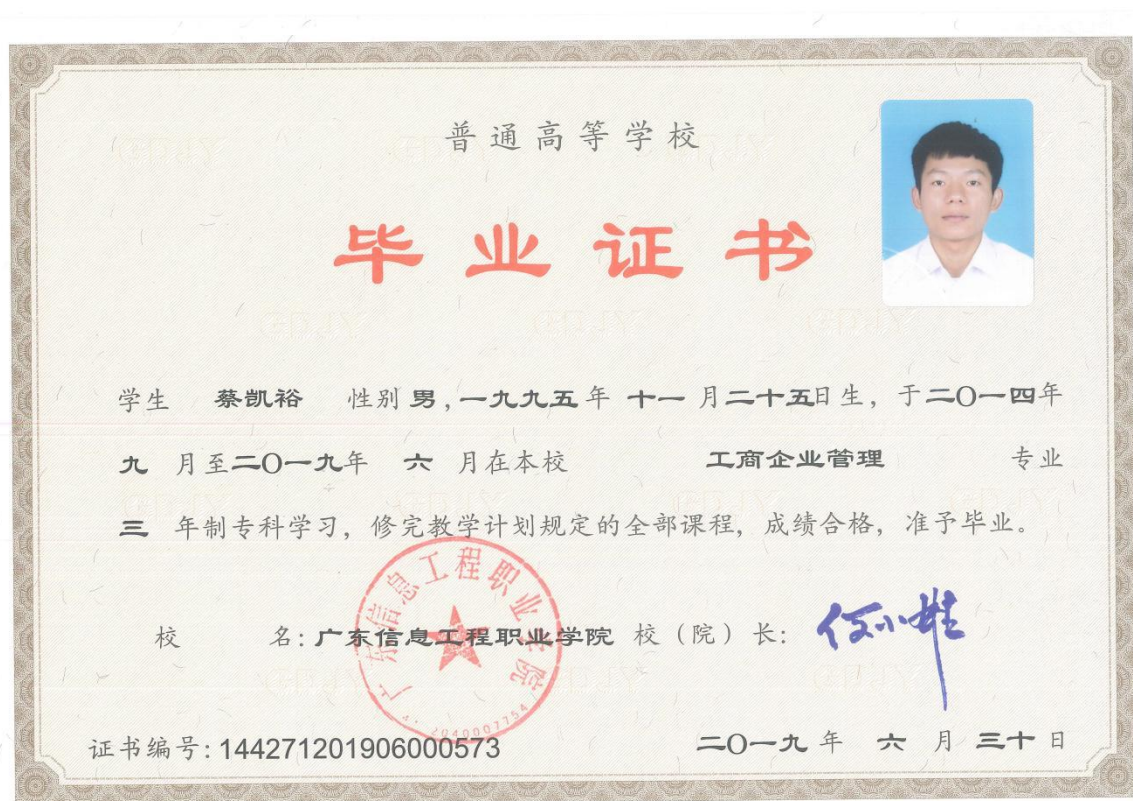 普通高等学校
毕业证书
学生 蔡凯裕 性别男,一九九五年 十一 月二十五日生，于二O一四年
九 月至二O一九年 六 月在本校 工商企业管理 专业
三 年制专科学习，修完教学计划规定的全部课程，成绩合格，准予毕业。
广东信息工程职业学院
校 名:广东信息工程职业学院 校（院）长:
证书编号:144271201906000573
二O一九 年 六 月 三十 日